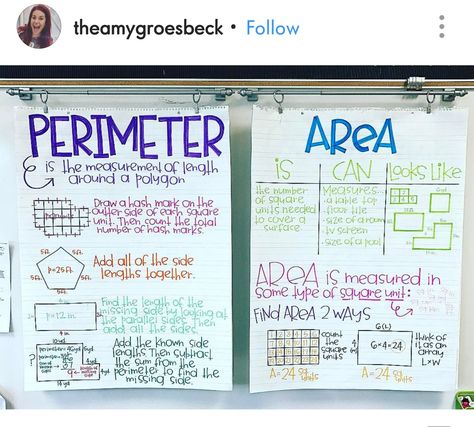 theamygroesbeck • Follow
PERIMETER
is the measurement of length
around a polygon
Draw a hash mark on the
outer side of each square
unit. Then count the total
number of hash marks.
5ft.
5ft.
P=25ft.
5ft.
5ft.
5ft.
Add all of the side
lengths together.
P=12in
Find the length of the
missing side by looking at
the parallel sides. Then
add all the sides.
Add the known side
lengths. Then subtract
the sum from the
perimeter to find the
missing side.
14yd
AREA
is
CAN
Looks Like
the number
of square
units needed
to cover a
surface.
Measures...
·a table top
·floor tile
·size of a room
·tv screen
·size of a pool
AREA is measured in
some type of square unit:
FIND AREA 2 WAYS
count
the
square
units
A=24 sq units
6(L)
6×4=24
think of
it as an
array
L×W
A=24 sq units